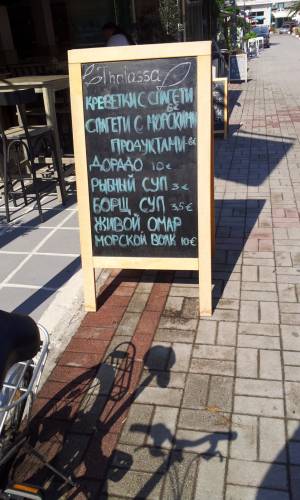 Thalassa
КРЕВЕТКИ С СПАГЕТИ
8€
СПАГЕТИ С МОРСКИМИ
ПРОДУКТАМИ 8€
ДОРАДО 10€
РЫБНЫЙ СУП 3€
БОРЩ СУП 3.5€
ЖИВОЙ ОМАР
МОРСКОЙ ВОЛК 10€